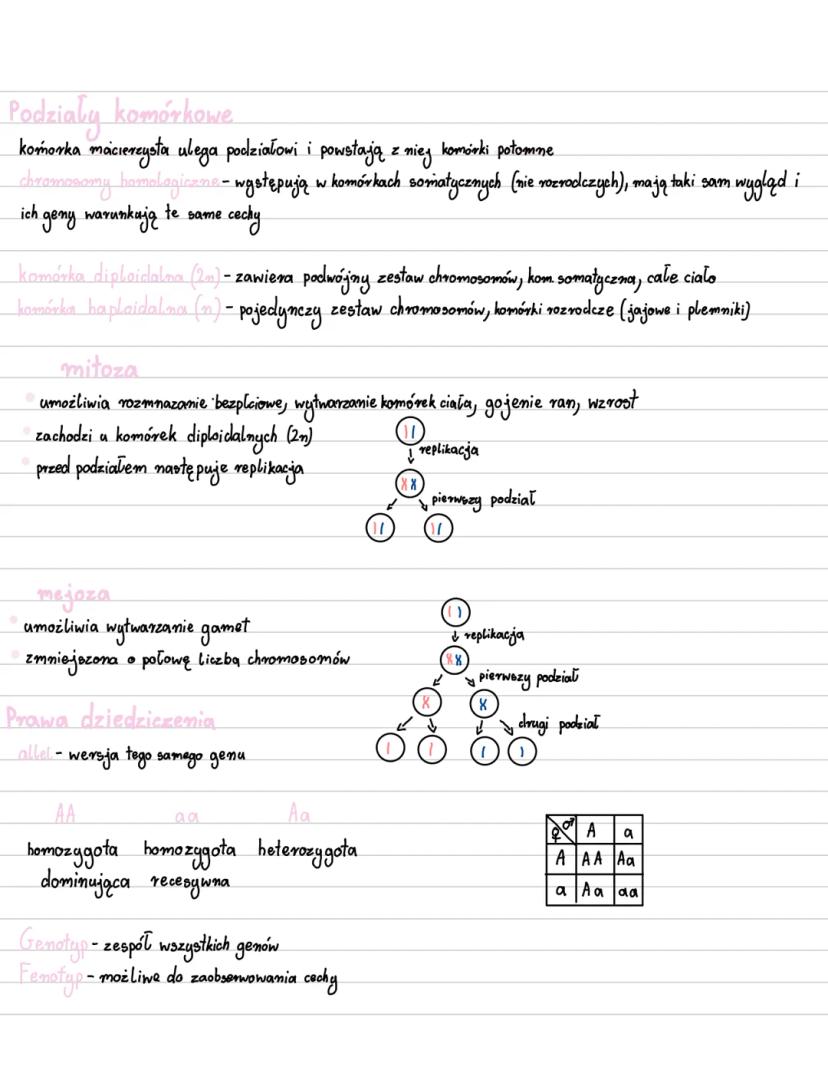 Podziały komórkowe
komórka macierzysta ulega podziałowi i powstają z niej komórki potomne
chromosomy homologiczne - występują w komórkach somatycznych (nie rozrodczych), mają taki sam wygląd i
ich geny warunkują te same cechy
komórka diploidalna (2n) - zawiera podwójny zestaw chromosomów, kom. somatyczna, całe ciało
komórka haploidalna (n) - pojedynczy zestaw chromosomów, komórki rozrodcze (jajowe i plemniki)
mitoza
umożliwia rozmnażanie bezpłciowe, wytwarzanie komórek ciała, gojenie ran, wzrost
zachodzi u komórek diploidalnych (2n)
przed podziałem następuje replikacja
replikacja
pierwszy podział
mejoza
umożliwia wytwarzanie gamet
zmniejszona o połowę liczba chromosomów
replikacja
pierwszy podział
drugi podział
Prawa dziedziczenia
allel - wersja tego samego genu
AA aa Aa
homozygota homozygota heterozygota
dominująca recesywna
♀ ♂ A a
A AA Aa
a Aa aa
Genotyp - zespół wszystkich genów
Fenotyp - możliwe do zaobserwowania cechy